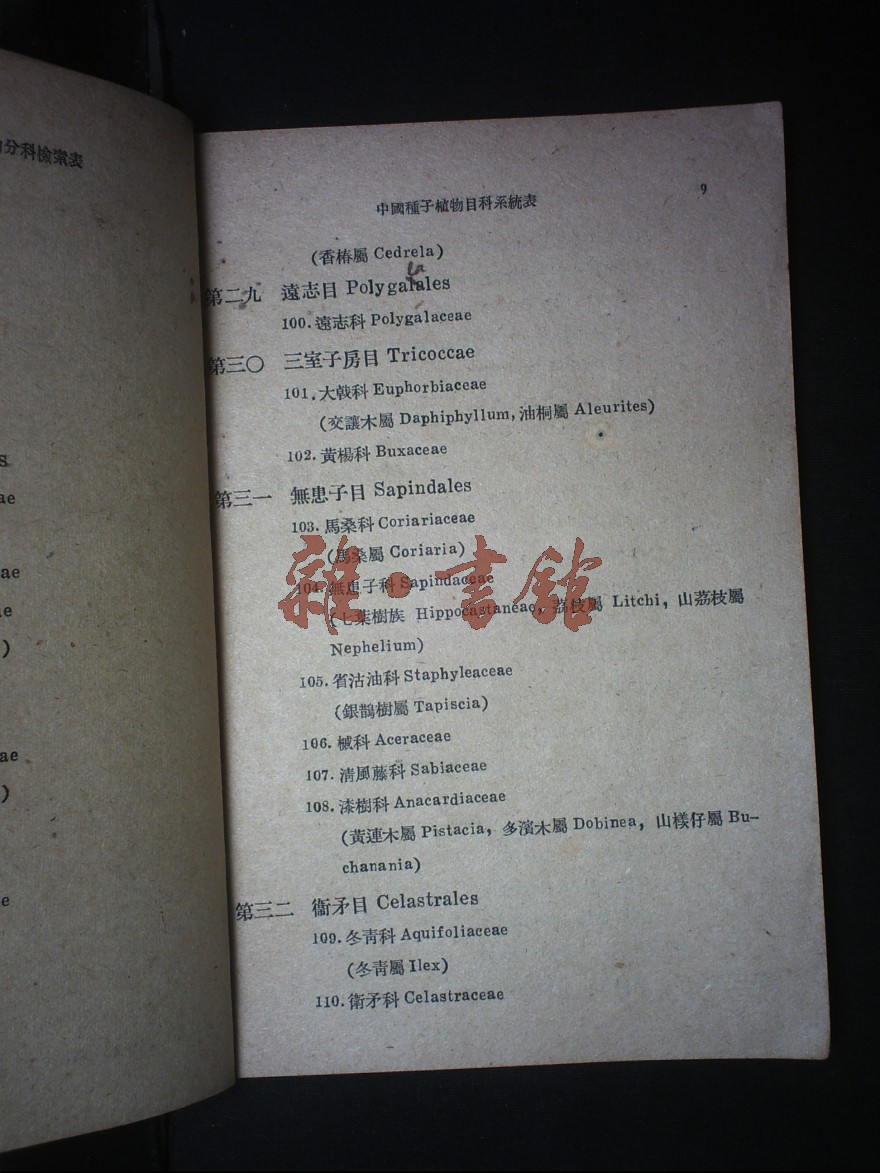 分科檢索表
S
ae
ae
ae
)
ae
)
e
中國種子植物目科系統表
9
(香椿屬 Cedrela)
la
第二九 遠志目 Polygalales
100.遠志科 Polygalaceae
第三〇 三室子房目 Tricoccae
101.大戟科 Euphorbiaceae
(交讓木屬 Daphiphyllum, 油桐屬 Aleurites)
102.黃楊科 Buxaceae
第三一 無患子目 Sapindales
103.馬桑科 Coriariaceae
(馬桑屬 Coriaria)
104.無患子科 Sapindaceae
(七葉樹族 Hippocastaneae, 荔枝屬 Litchi, 山荔枝屬
Nephelium)
105.省沽油科 Staphyleaceae
(銀鵲樹屬 Tapiscia)
106.槭科 Aceraceae
107.清風藤科 Sabiaceae
108.漆樹科 Anacardiaceae
(黃連木屬 Pistacia, 多濱木屬 Dobinea, 山樣仔屬 Bu-
chanania)
第三二 衞矛目 Celastrales
109.冬靑科 Aquifoliaceae
(冬靑屬 Ilex)
110.衛矛科 Celastraceae
雜·書館